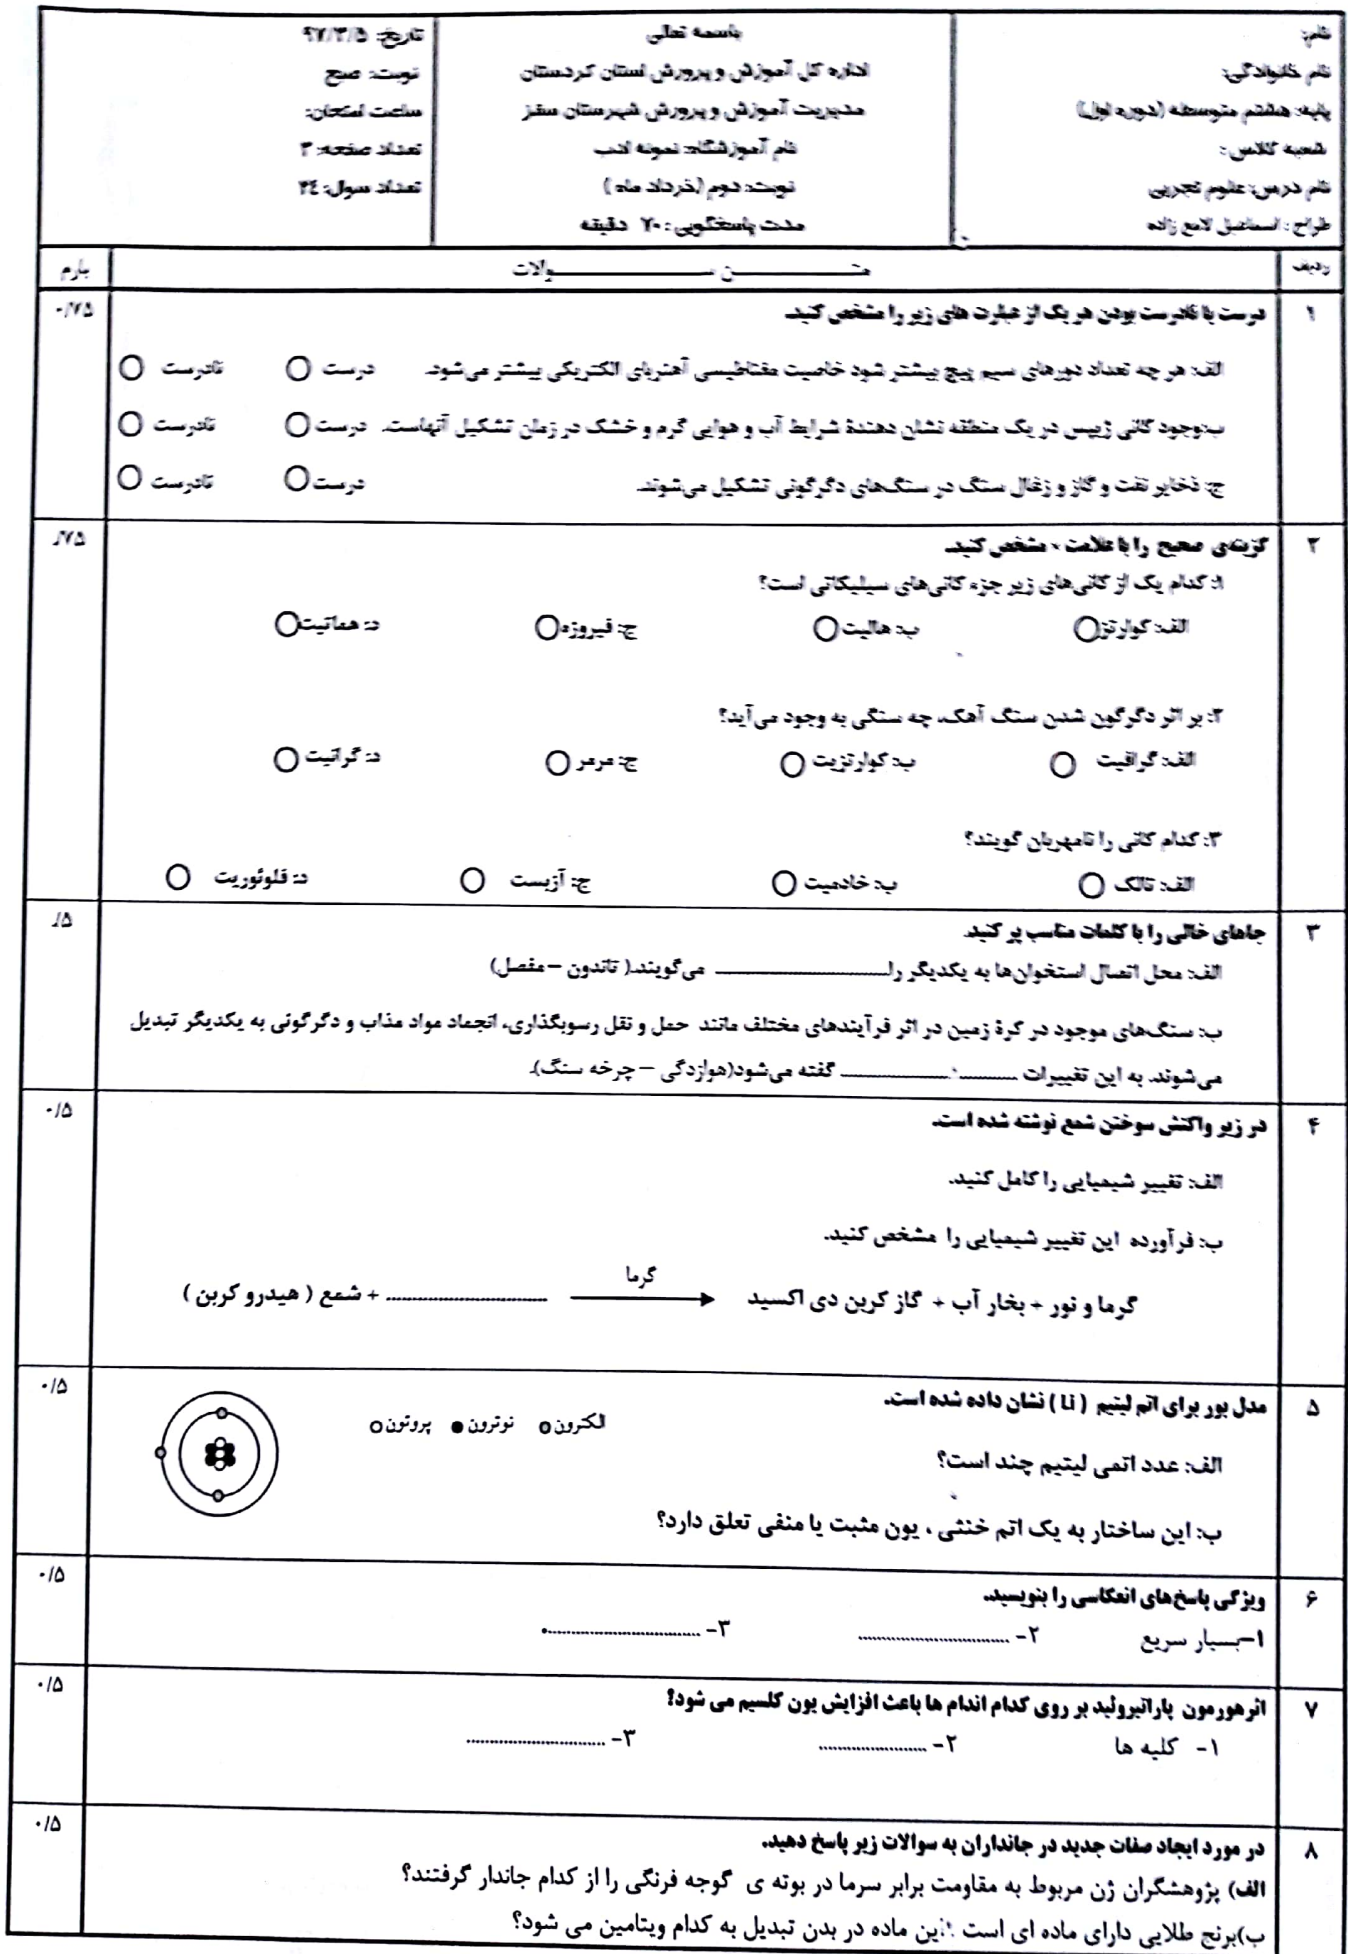 نام:
نام خانوادگی:
پایه: هشتم متوسطه (دوره اول)
شعبه کلاس:
نام درس: علوم تجربی
طراح: اسماعیل لامع زاده
باسمه تعالی
اداره کل آموزش و پرورش استان کردستان
مدیریت آموزش و پرورش شهرستان سقز
نام آموزشگاه: نمونه ادب
نوبت: دوم (خرداد ماه)
مدت پاسخگویی: ۷۰ دقیقه
تاریخ: ۹۷/۳/۵
نوبت: صبح
ساعت امتحان:
تعداد صفحه: ۳
تعداد سوال: ۲۴
ردیف متــن ســوالات بارم
۱ درست یا نادرست بودن هر یک از عبارت های زیر را مشخص کنید. ۰/۷۵
الف: هر چه تعداد دورهای سیم پیچ بیشتر شود خاصیت مغناطیسی آهنربای الکتریکی بیشتر می‌شود. درست نادرست
ب: وجود کانی ژیپس در یک منطقه نشان دهندهٔ شرایط آب و هوایی گرم و خشک در زمان تشکیل آنهاست. درست نادرست
ج: ذخایر نفت و گاز و زغال سنگ در سنگ‌های دگرگونی تشکیل می‌شوند. درست نادرست
۲ گزینه‌ی صحیح را با علامت × مشخص کنید. ./۷۵
۱: کدام یک از کانی‌های زیر جزء کانی‌های سیلیکاتی است؟
الف: کوارتز ب: هالیت ج: فیروزه د: هماتیت
۲: بر اثر دگرگون شدن سنگ آهک، چه سنگی به وجود می‌آید؟
الف: گرافیت ب: کوارتزیت ج: مرمر د: گرانیت
۳: کدام کانی را نامهربان گویند؟
الف: تالک ب: خادمیت ج: آزبست د: فلوئوریت
۳ جاهای خالی را با کلمات مناسب پر کنید. ./۵
الف: محل اتصال استخوان‌ها به یکدیگر را ........ می‌گویند.( تاندون – مفصل)
ب: سنگ‌های موجود در کرهٔ زمین در اثر فرآیندهای مختلف مانند حمل و نقل رسوبگذاری، انجماد مواد مذاب و دگرگونی به یکدیگر تبدیل
می‌شوند. به این تغییرات ........ گفته می‌شود(هوازدگی – چرخه سنگ).
۴ در زیر واکنش سوختن شمع نوشته شده است. ۰/۵
الف: تغییر شیمیایی را کامل کنید.
ب: فرآورده این تغییر شیمیایی را مشخص کنید.
گرما
گرما و نور + بخار آب + گاز کربن دی اکسید ........ + شمع ( هیدرو کربن )
۵ مدل بور برای اتم لیتیم ( Li ) نشان داده شده است. ۰/۵
الکترون نوترون پروتون
الف: عدد اتمی لیتیم چند است؟
ب: این ساختار به یک اتم خنثی ، یون مثبت یا منفی تعلق دارد؟
۶ ویژگی پاسخ‌های انعکاسی را بنویسید. ۰/۵
۱-بسیار سریع ۲- ........ ۳- ........
۷ اثرهورمون پاراتیروئید بر روی کدام اندام ها باعث افزایش یون کلسیم می شود؟ ۰/۵
۱- کلیه ها ۲- ........ ۳- ........
۸ در مورد ایجاد صفات جدید در جانداران به سوالات زیر پاسخ دهید. ۰/۵
الف) پژوهشگران ژن مربوط به مقاومت برابر سرما در بوته ی گوجه فرنگی را از کدام جاندار گرفتند؟
ب)برنج طلایی دارای ماده ای است این ماده در بدن تبدیل به کدام ویتامین می شود؟